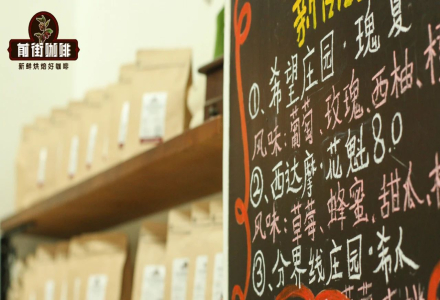 前街咖啡
新鲜烘焙好咖啡
①、希望庄园·瑰夏
风味:葡萄、玫瑰、西柚、
②、西达摩 花魁8.0
风味:草莓、蜂蜜、甜瓜、
③、分界线庄园·希爪